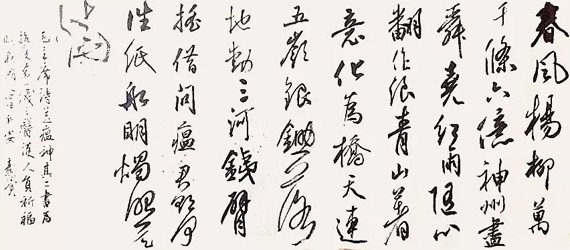 春風楊柳萬
千條六億神州盡
舜堯紅雨隨心
翻作浪青山著
意化為橋天連
五嶺銀鋤落
地動三河鐵臂
搖借問瘟君欲何
往紙船明燭照天
燒
毛主席詩送瘟神其二書為
抗疫第一線之醫護人員祈福
平安